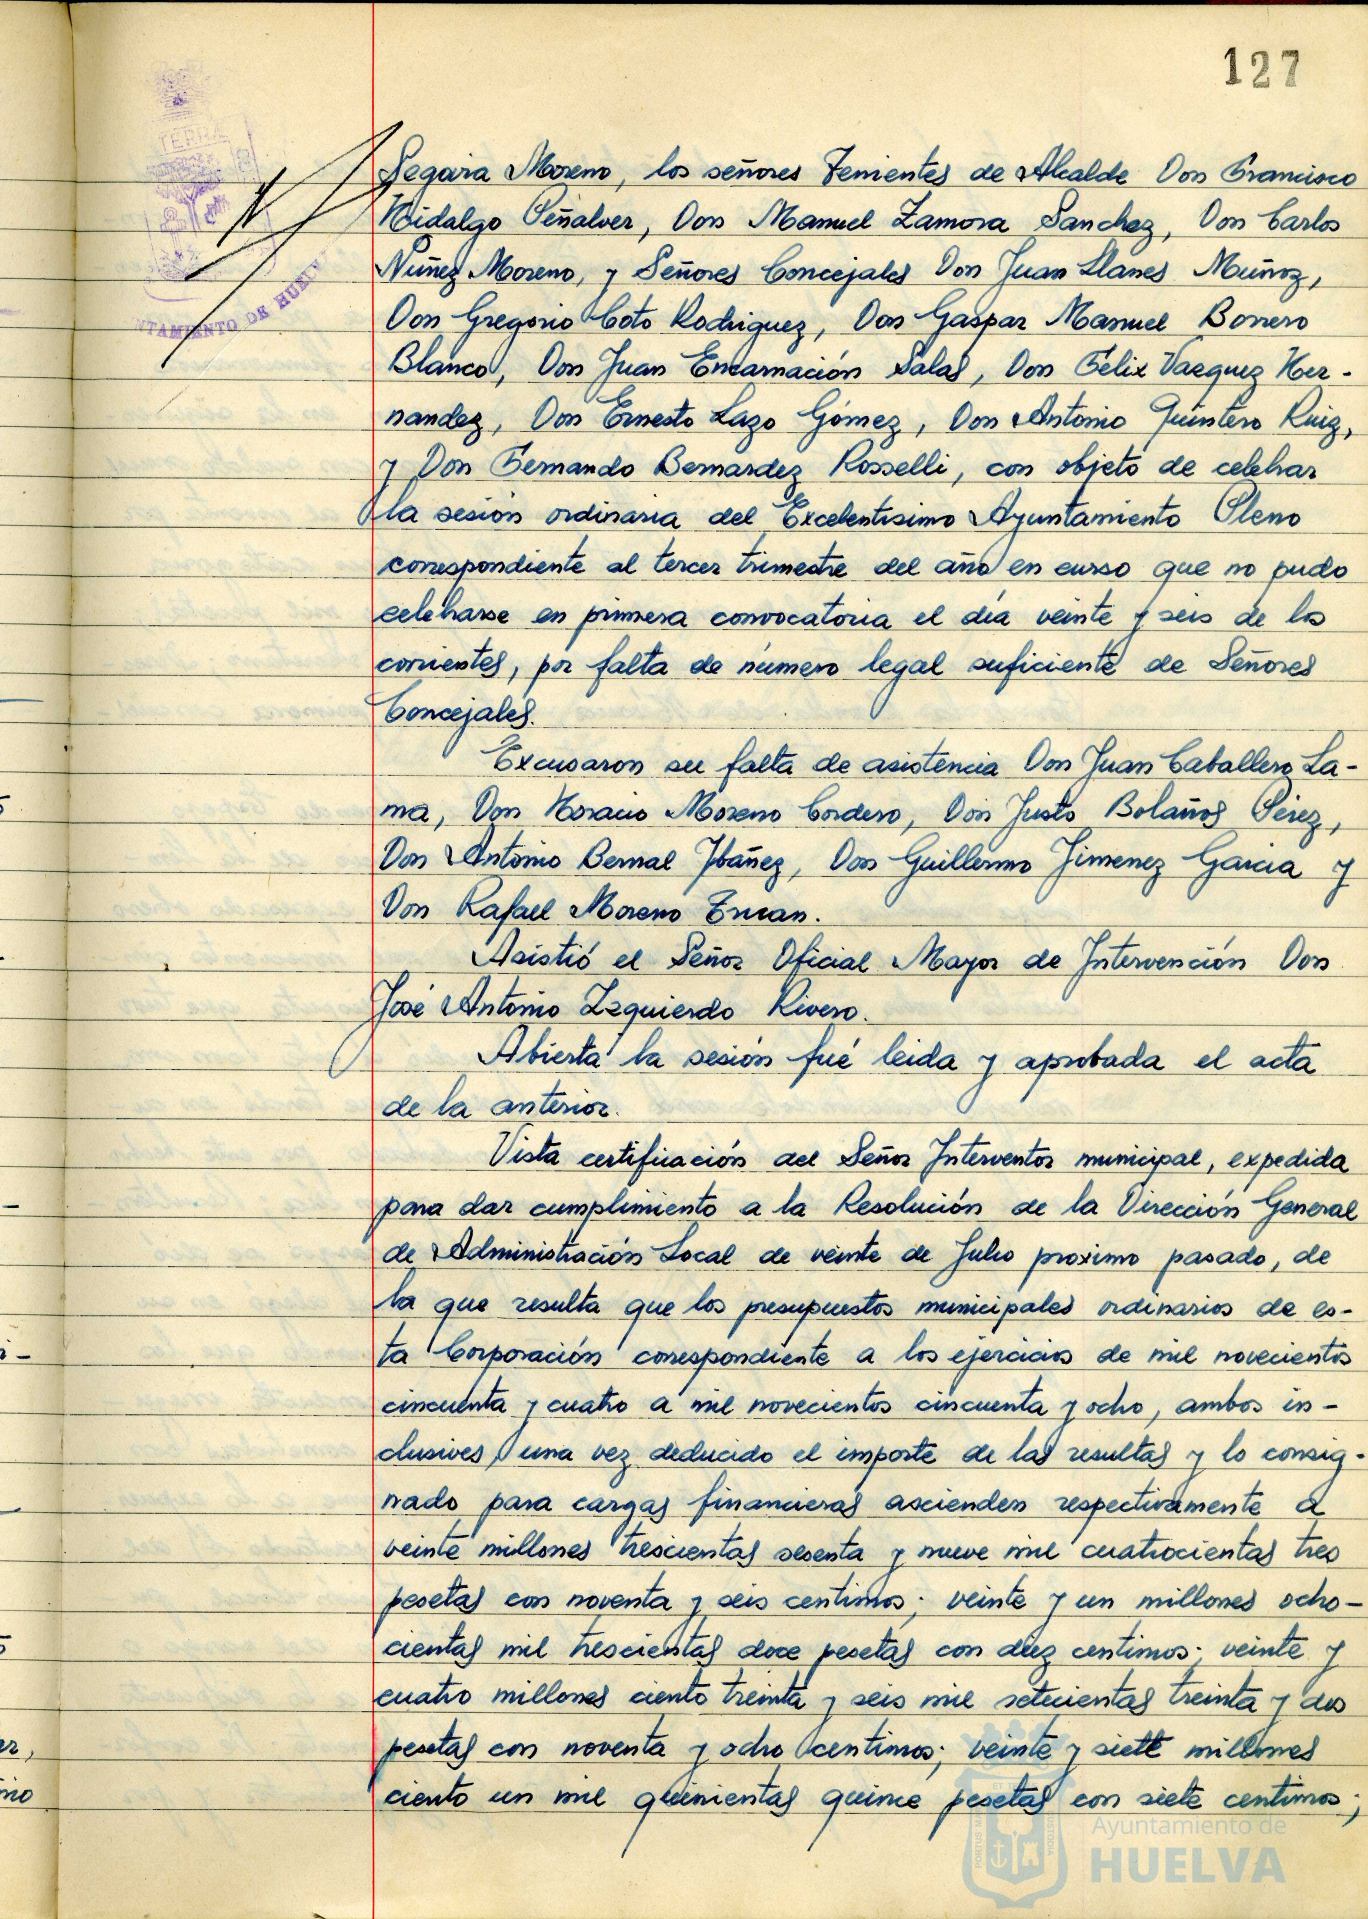 127
TERRÆ
NTAMIENTO DE HUELV
Segovia Moreno, los señores Tenientes de Alcalde Don Francisco
Hidalgo Peñalver, Don Manuel Zamora Sanchez, Don Carlos
Nuñez Moreno, y Señores Concejales Don Juan Llanes Muñoz,
Don Gregorio Coto Rodriguez, Don Gaspar Manuel Borrero
Blanco, Don Juan Encarnación Salas, Don Félix Vazquez Her-
nandez, Don Ernesto Lazo Gómez, Don Antonio Quintero Ruiz,
y Don Fernando Bernardez Rosselli, con objeto de celebrar
la sesión ordinaria del Excelentisimo Ayuntamiento Pleno
correspondiente al tercer trimestre del año en curso que no pudo
celebrarse en primera convocatoria el día veinte y seis de los
corrientes, por falta de número legal suficiente de Señores
Concejales.
Excusaron su falta de asistencia Don Juan Caballero La-
ma, Don Horacio Moreno Cordero, Don Justo Bolaños Pérez,
Don Antonio Bernal Ibáñez, Don Guillermo Jimenez Garcia y
Don Rafael Moreno
Asistió el Señor Oficial Mayor de Intervención Don
José Antonio Izquierdo Rivero.
Abierta la sesión fué leida y aprobada el acta
de la anterior.
Vista certificación del Señor Interventor municipal, expedida
para dar cumplimiento a la Resolución de la Dirección General
de Administración Local de veinte de Julio proximo pasado, de
la que resulta que los presupuestos municipales ordinarios de es-
ta Corporación correspondiente a los ejercicios de mil novecientos
cincuenta y cuatro a mil novecientos cincuenta y ocho, ambos in-
clusives, una vez deducido el importe de las resultas y lo consig-
nado para cargas financieras ascienden respectivamente a
veinte millones trescientas sesenta y nueve mil cuatrocientas tres
pesetas con noventa y seis centimos; veinte y un millones ocho-
cientas mil trescientas doce pesetas con diez centimos; veinte y
cuatro millones ciento treinta y seis mil setecientas treinta y dos
pesetas con noventa y ocho centimos; veinte y siete millones
ciento un mil quinientas quince pesetas con siete centimos;
Ayuntamiento de
HUELVA